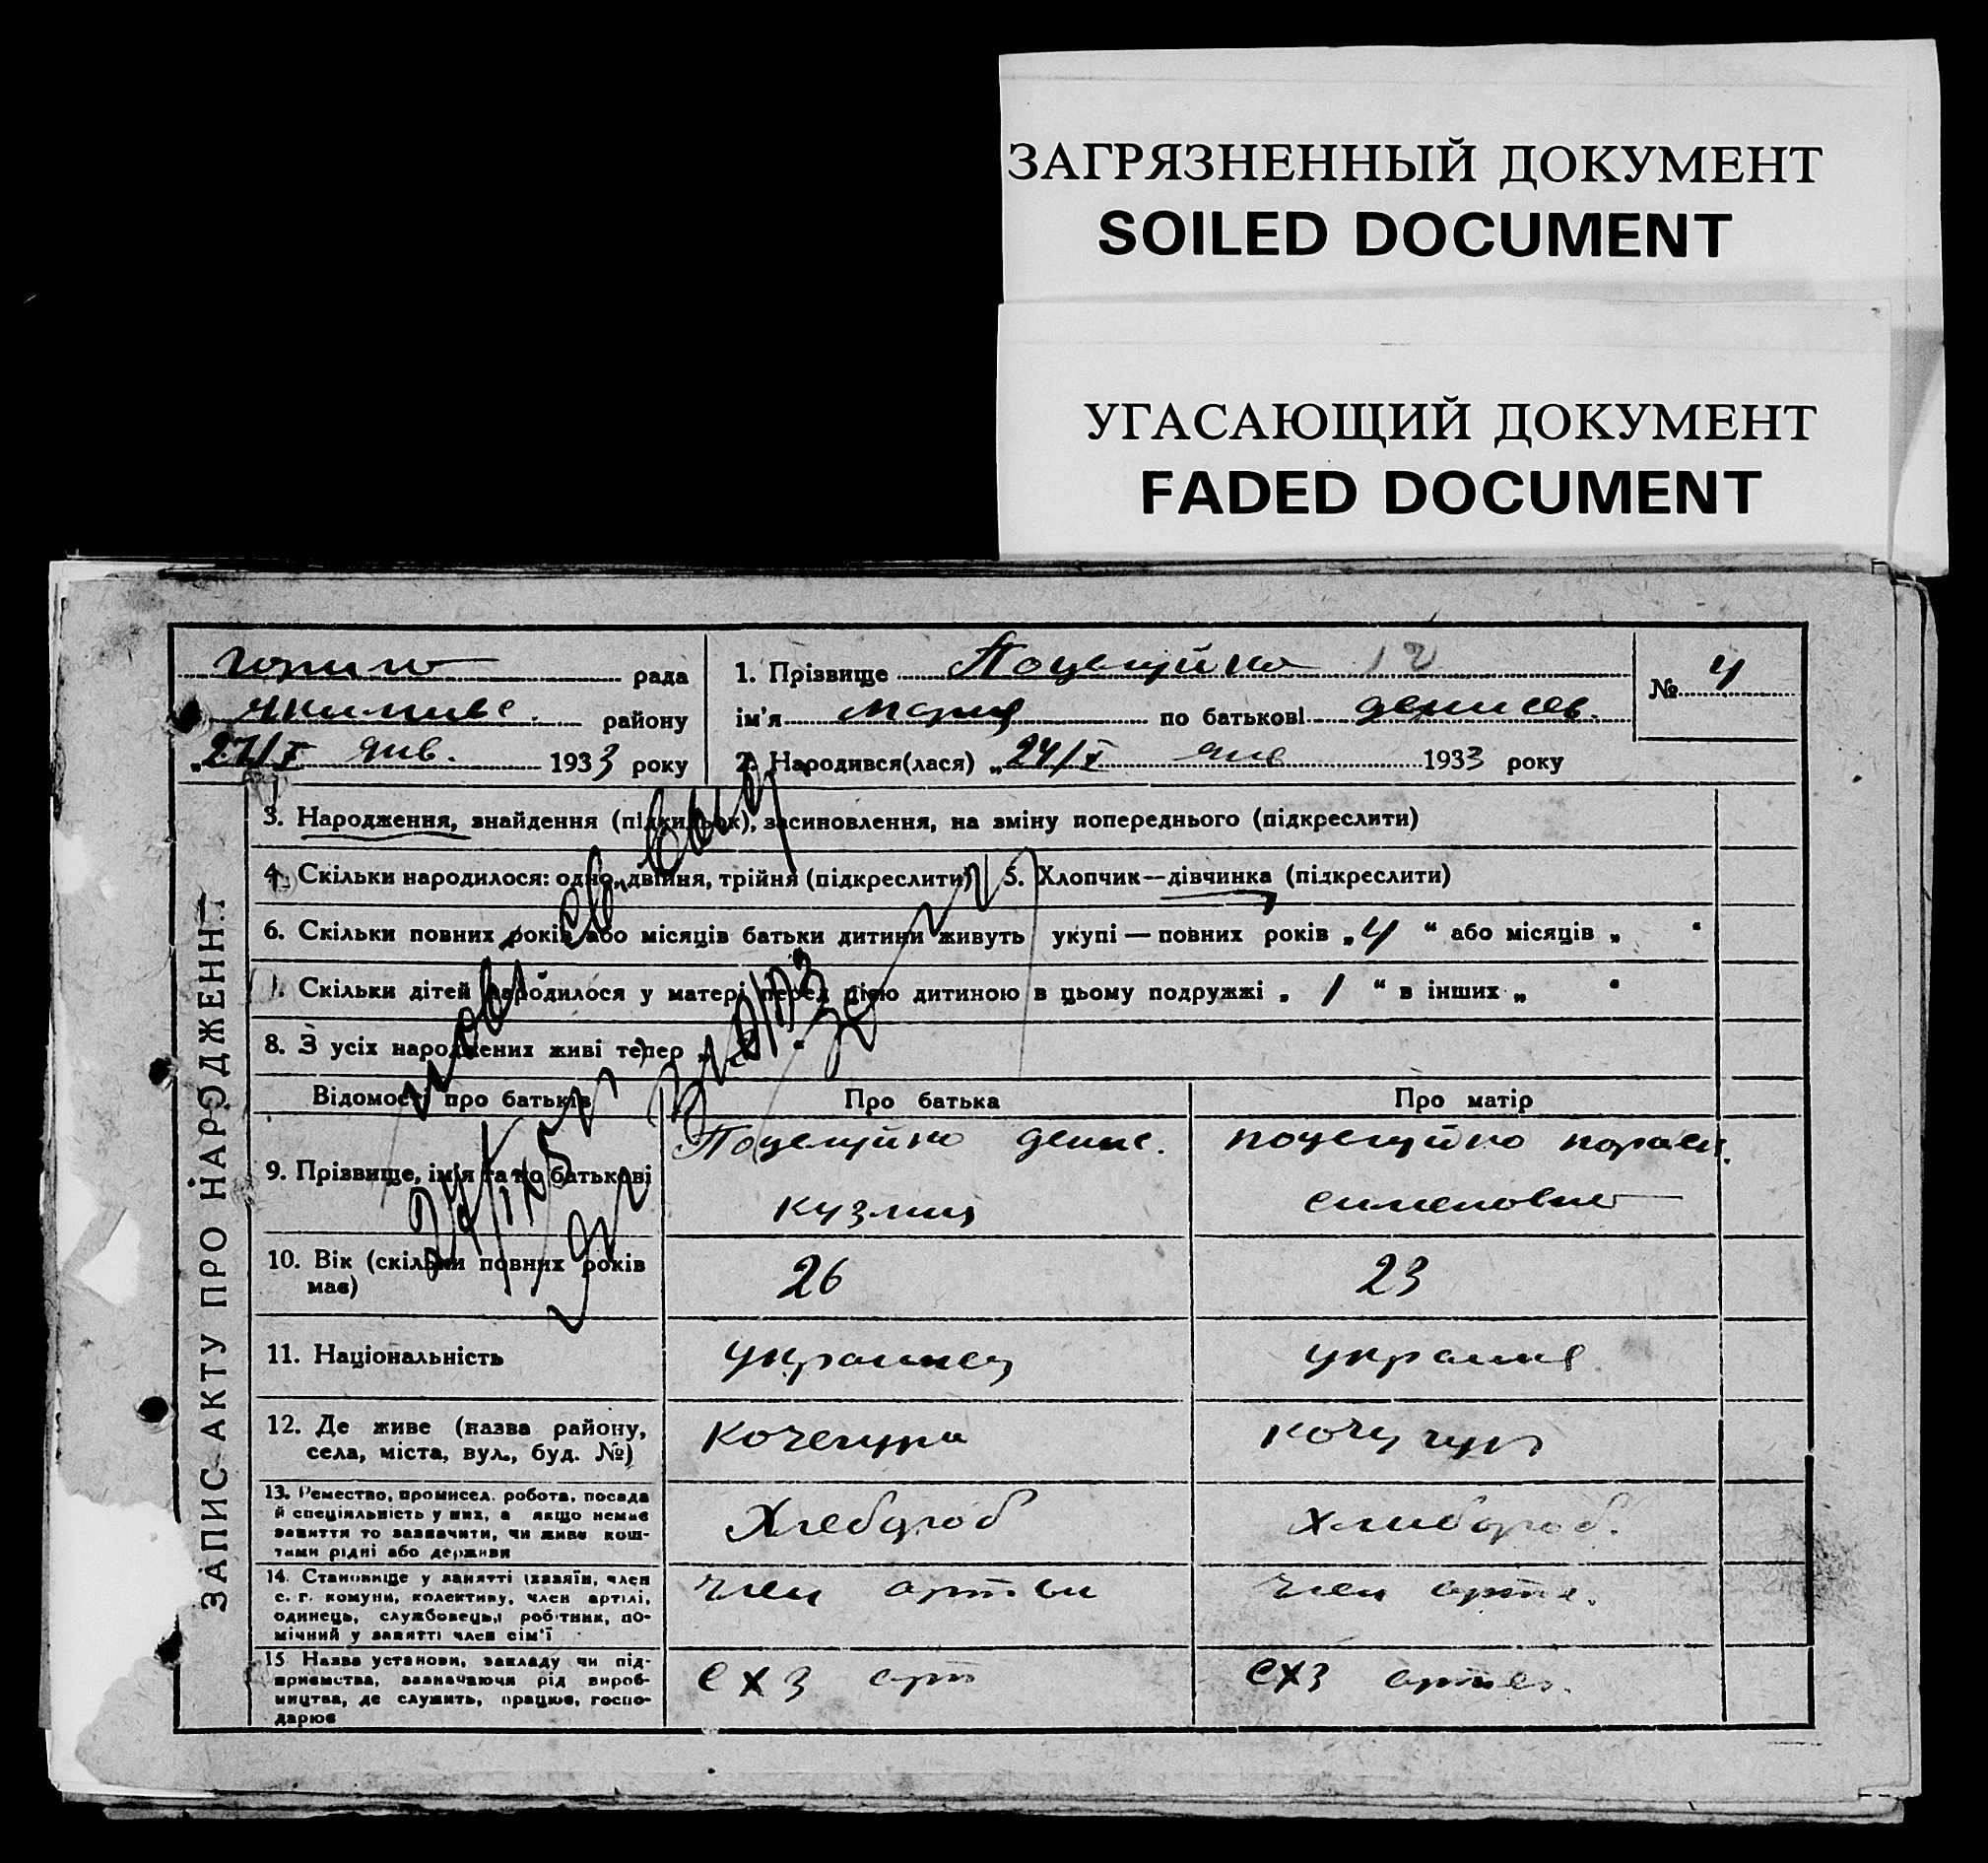 ЗАГРЯЗНЕННЫЙ ДОКУМЕНТ
SOILED DOCUMENT
УГАСАЮЩИЙ ДОКУМЕНТ
FADED DOCUMENT
ЗАПИС АКТУ ПРО НАРОДЖЕННЯ
рада
району
„27/I янв. 1933 року
1. Прізвище Поцелуйко 12
ім'я Мария по батькові денисов.
№ 4
2. Народився(лася) „24/I янв 1933 року
3. Народження, знайдення (підкидьок), засиновлення, на зміну попереднього (підкреслити)
4. Скільки народилося: одно, двійня, трійня (підкреслити) 5. Хлопчик—дівчинка (підкреслити)
6. Скільки повних років або місяців батьки дитини живуть укупі — повних років „4 “ або місяців „ “
7. Скільки дітей народилося у матері перед цією дитиною в цьому подружжі „ 1 “ в інших „ “
8. З усіх народжених живі тепер „ “
Відомості про батьків Про батька Про матір
9. Прізвище, ім'я та по батькові
Поцелуйко денис.
кузмич
поцелуйко параск.
симеловне
10. Вік (скільки повних років
має)
26 23
11. Національність украинец украине
12. Де живе (назва району,
села, міста, вул., буд. №)
Кочегури
13. Ремество, промисел, робота, посада
й спеціяльність у них, а якщо немає
заняття то зазначити, чи живе кош-
тами рідні або держави
Хлебороб хлибороб.
14. Становище у занятті (хазяїн, член
с. г. комуни, колективу, член артілі,
одинець, службовець, робітник, по-
мічний у занятті член сім'ї
член арте.
15 Назва установи, закладу чи під-
приємства, зазначаючи рід вироб-
ництва, де служить, працює, госпо-
дарює
схз арт схз артел.